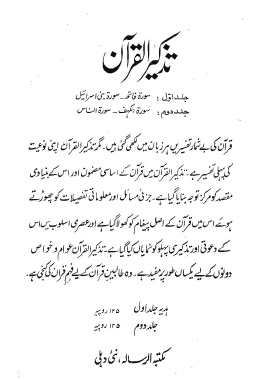 تذکیر القرآن
جلد اوّل : سورۃ فاتحہ ۔ سورۃ بنی اسرائیل
جلد دوم : سورۃ الکہف ۔ سورۃ الناس
قرآن کی بے شمار تفسیریں ہر زبان میں لکھی گئی ہیں۔ مگر تذکیر القرآن اپنی نوعیت
کی پہلی تفسیر ہے۔ تذکیر القرآن میں قرآن کے اساسی مضمون اور اس کے بنیادی
مقصد کو مرکزِ توجہ بنایا گیا ہے۔ جزئی مسائل اور معلوماتی تفصیلات کو چھوڑتے
ہوئے اس میں قرآن کے اصل پیغام کو کھولا گیا ہے اور عصری اسلوب میں اس
کے دعوتی اور تذکیری پہلو کو نمایاں کیا گیا ہے۔ تذکیر القرآن عوام و خواص
دونوں کے لیے یکساں طور پر مفید ہے۔ وہ طالبینِ قرآن کے لیے فہمِ قرآن کی کنجی ہے۔
ہدیہ جلد اول ۱۲۵ روپیہ
جلد دوم ۱۲۵ روپیہ
مکتبہ الرسالہ، نئی دہلی